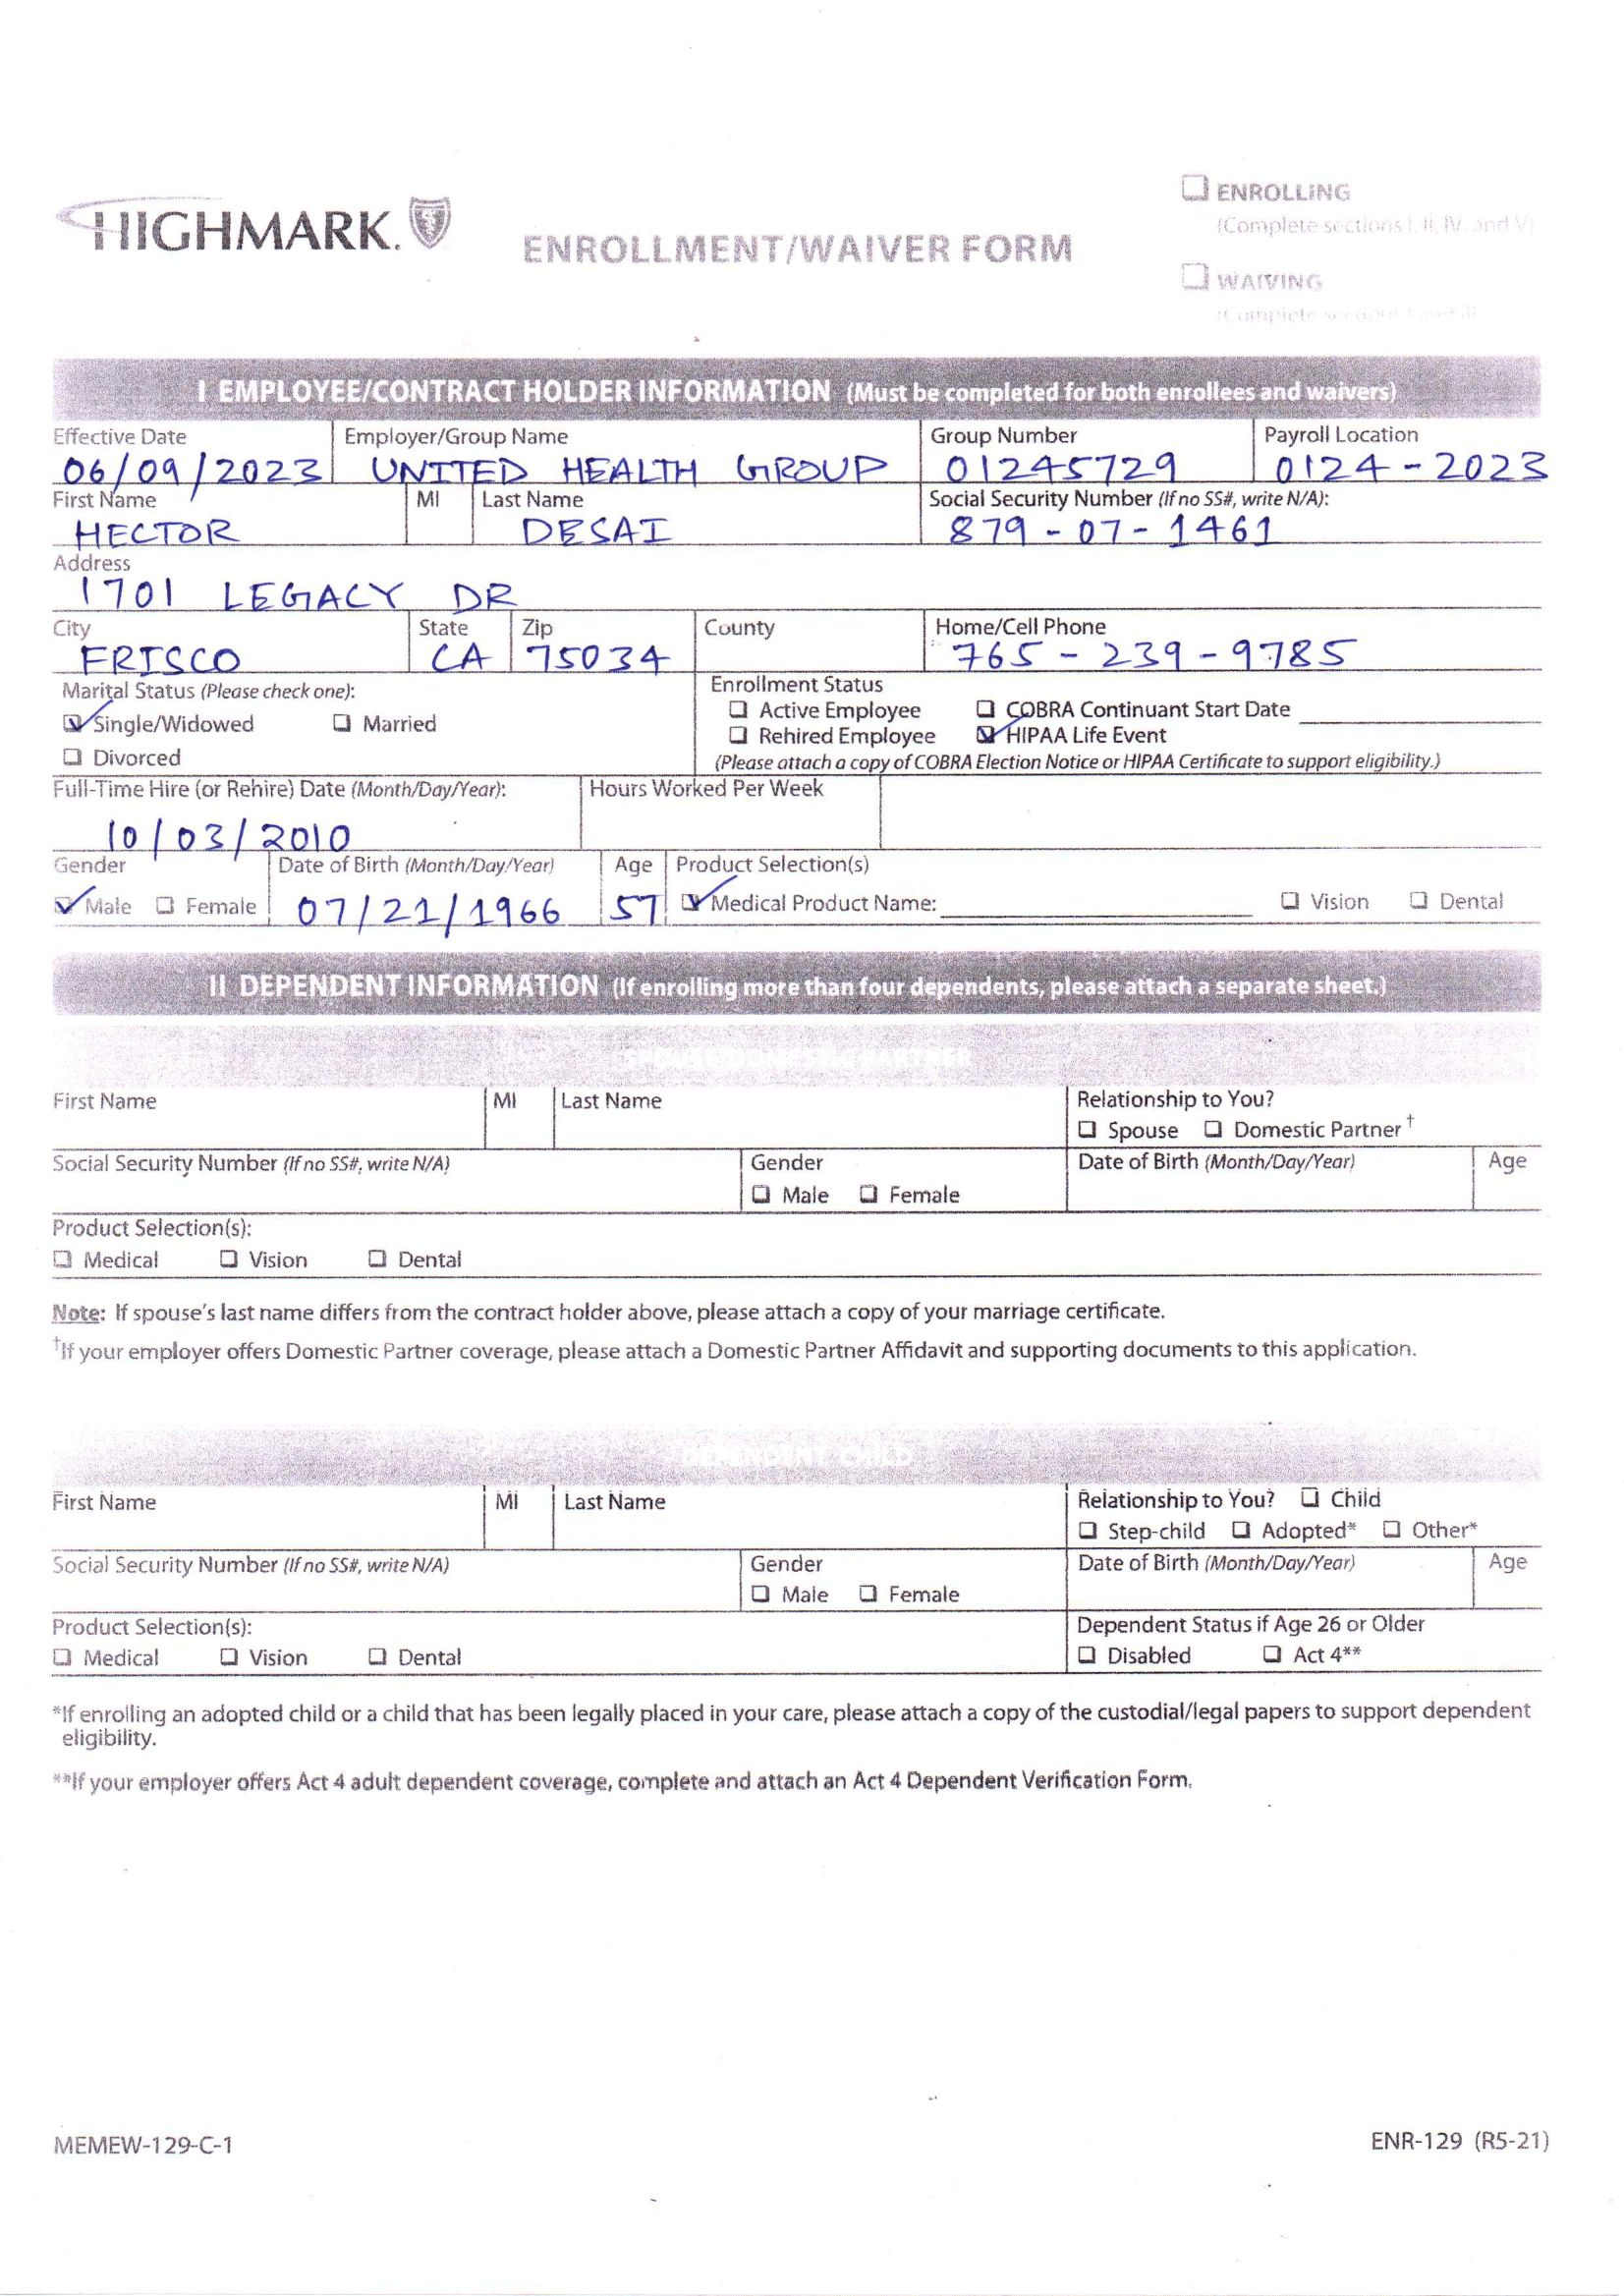 HIGHMARK.
ENROLLMENT/WAIVER FORM
☐ ENROLLING
(Complete sections I, II, IV, and V)
☐ WAIVING
(Complete sections I and III
I EMPLOYEE/CONTRACT HOLDER INFORMATION (Must be completed for both enrollees and waivers)
Effective Date Employer/Group Name Group Number Payroll Location
06/09/2023 UNITED HEALTH GROUP 01245729 0124-2023
First Name MI Last Name Social Security Number (If no SS#, write N/A):
HECTOR DESAI 879-07-1461
Address
1701 LEGACY DR
City State Zip County Home/Cell Phone
FRISCO CA 75034 765-239-9785
Marital Status (Please check one): Enrollment Status
☑ Single/Widowed ☐ Married ☐ Active Employee ☐ COBRA Continuant Start Date
☐ Rehired Employee ☑ HIPAA Life Event
☐ Divorced (Please attach a copy of COBRA Election Notice or HIPAA Certificate to support eligibility.)
Full-Time Hire (or Rehire) Date (Month/Day/Year): Hours Worked Per Week
10/03/2010
Gender Date of Birth (Month/Day/Year) Age Product Selection(s)
☑ Male ☐ Female 07/21/1966 57 ☑ Medical Product Name: ☐ Vision ☐ Dental
II DEPENDENT INFORMATION (If enrolling more than four dependents, please attach a separate sheet.)
SPOUSE/DOMESTIC PARTNER
First Name MI Last Name Relationship to You?
☐ Spouse ☐ Domestic Partner†
Social Security Number (If no SS#, write N/A) Gender Date of Birth (Month/Day/Year) Age
☐ Male ☐ Female
Product Selection(s):
☐ Medical ☐ Vision ☐ Dental
Note: If spouse's last name differs from the contract holder above, please attach a copy of your marriage certificate.
†If your employer offers Domestic Partner coverage, please attach a Domestic Partner Affidavit and supporting documents to this application.
DEPENDENT CHILD
First Name MI Last Name Relationship to You? ☐ Child
☐ Step-child ☐ Adopted* ☐ Other*
Social Security Number (If no SS#, write N/A) Gender Date of Birth (Month/Day/Year) Age
☐ Male ☐ Female
Product Selection(s): Dependent Status if Age 26 or Older
☐ Medical ☐ Vision ☐ Dental ☐ Disabled ☐ Act 4**
*If enrolling an adopted child or a child that has been legally placed in your care, please attach a copy of the custodial/legal papers to support dependent
eligibility.
**If your employer offers Act 4 adult dependent coverage, complete and attach an Act 4 Dependent Verification Form.
MEMEW-129-C-1 ENR-129 (R5-21)